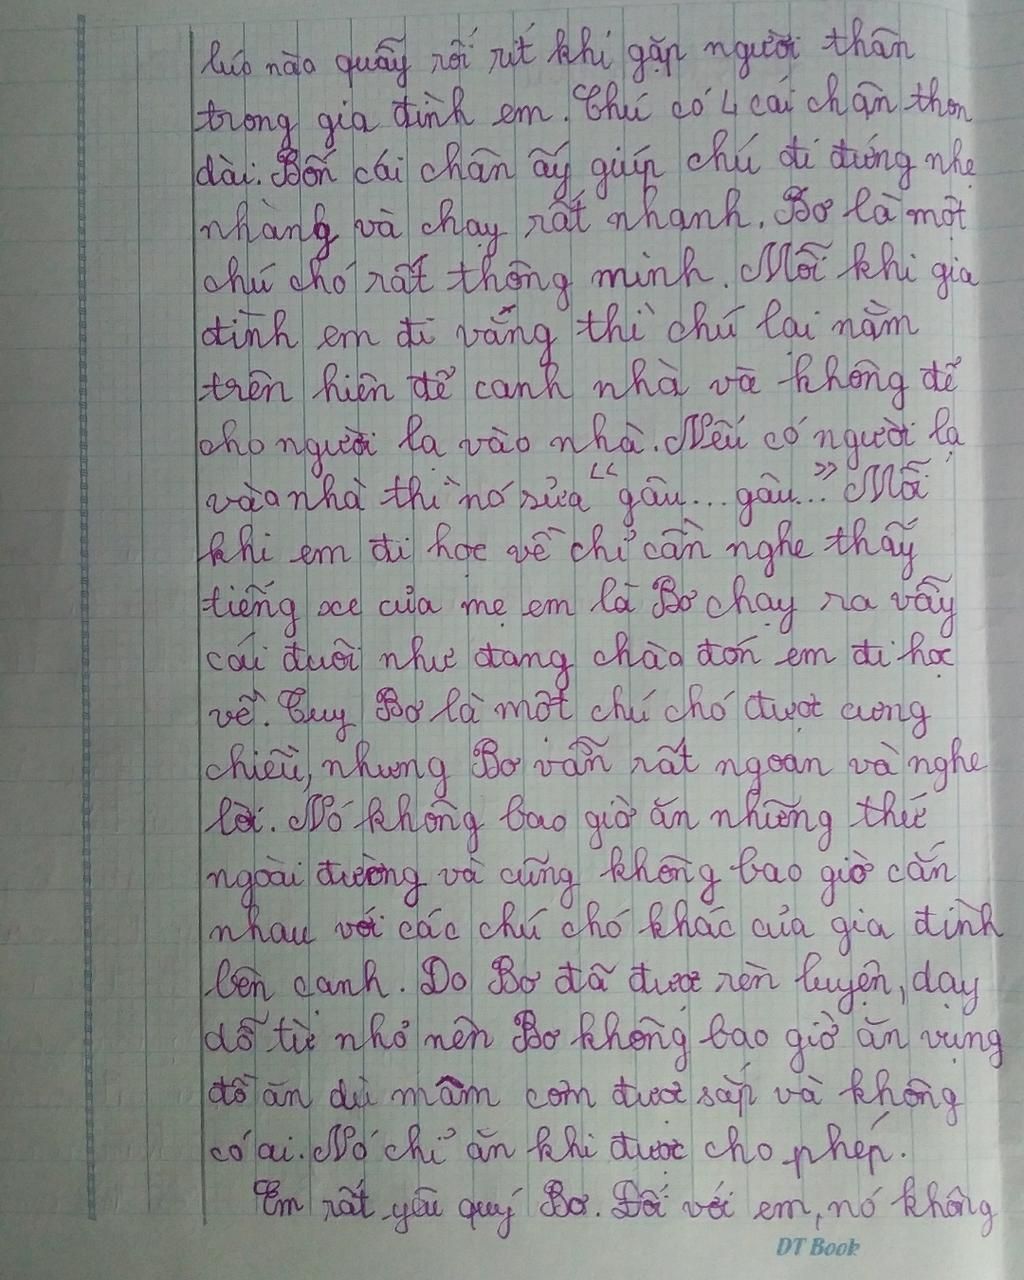 lúc nào quấy rối rít khi gặp người thân
trong gia đình em. Chú có 4 cái chân thon
dài. Bốn cái chân ấy giúp chú đi đứng nhẹ
nhàng và chạy rất nhanh. Bơ là một
chú chó rất thông minh. Mỗi khi gia
đình em đi vắng thì chú lại nằm
trên hiên để canh nhà và không để
cho người lạ vào nhà. Nếu có người lạ
vào nhà thì nó sủa "gâu... gâu..." Mỗi
khi em đi học về chỉ cần nghe thấy
tiếng xe của mẹ em là Bơ chạy ra vẫy
cái đuôi như đang chào đón em đi học
về. Tuy Bơ là một chú chó được cưng
chiều, nhưng Bơ vẫn rất ngoan và nghe
lời. Nó không bao giờ ăn những thứ
ngoài đường và cũng không bao giờ cắn
nhau với các chú chó khác của gia đình
bên cạnh. Do Bơ đã được rèn luyện, dạy
dỗ từ nhỏ nên Bơ không bao giờ ăn vụng
đồ ăn dù mâm cơm được sắp và không
có ai. Nó chỉ ăn khi được cho phép.
Em rất yêu quý Bơ. Đối với em, nó không
DT Book